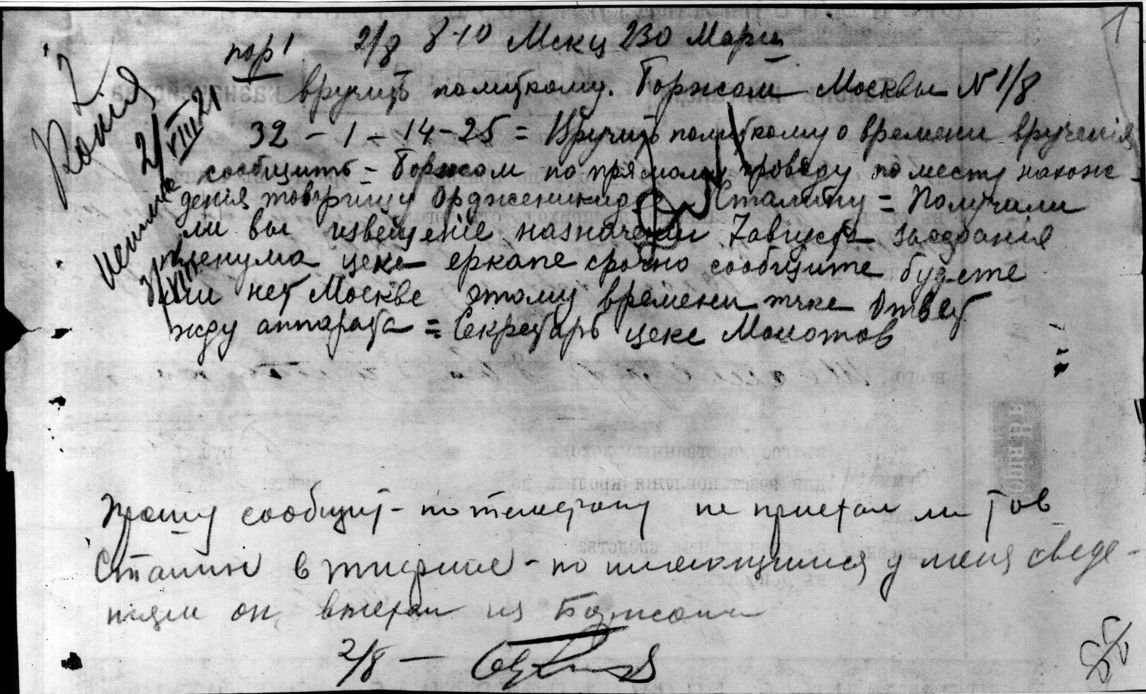 1
2
Копия
2/VIII 21
пор 1 2/8 8-10 Мскц 230 Марц
вручить политкому. Боржом Москвы N 1/8
32 - 1 - 14-25 = Вручить политкому о времени вручения
сообщить - Боржом по прямому проводу по месту нахож-
дения товарищу Орджоникидзе Сталину = Получили
ли вы извещение назначении 7 августа заседания
пленума цека еркапе срочно сообщите будете
ли нет Москве этому времени тчка Ответ
жду аппарата = Секретарь цека Молотов
Прошу сообщить по телефону не приехал ли Тов
Сталин в Тифлис - по имеющимся у меня сведе-
ниям он выехал из Боржома
2/8 -